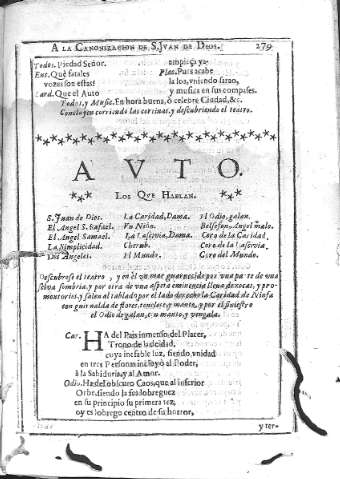 A LA CANONIZACION DE S. JVAN DE DIOS. 279
Todos. Piedad Señor.
Ens. Què fatales
vozes son estas?
Lard. Que el Auto
empieça ya.
Plac. Pues acabe
la loa, vniendo sarao,
y musica en sus compases.
Todos, y Music. En hora buena, ò celebre Ciudad, &c.
Concluyen corriendo las cortinas, y descubriendo el teatro.
AVTO.
LOS QVE HABLAN.
S. Juan de Dios. La Caridad, Dama. El Odio, galan.
El Angel S. Rafael. Vn Niño. Belfegor, Angel malo.
El Angel Samael. La Lascivia, Dama. Coro de la Caridad.
La Simplicidad. Cherub. Coro de la Lascivia.
Dos Angeles. El Mundo. Coro del Mundo.
Descubrese el teatro, y en èl un mar guarnecido por una parte de una
selva sombria, y por otra de una aspera eminencia llena de rocas, y pro-
montorios, y salen al tablado por el lado derecho la Caridad de Ninfa
con guirnalda de flores, y manto, y por el siniestro
el Odio de galan, con manto, y vengala.
Car. HA del Pais inmenso del Placer,
Trono de la deidad,
cuya inefable luz, siendo vnidad
en tres Personas incluyò al Poder,
à la Sabiduria, y al Amor.
Odio. Ha del obscuro Caos, que al inferior
Orbe, siendo la
en su principio su primera tez,
oy es lobrego centro de su horror,
y ter-